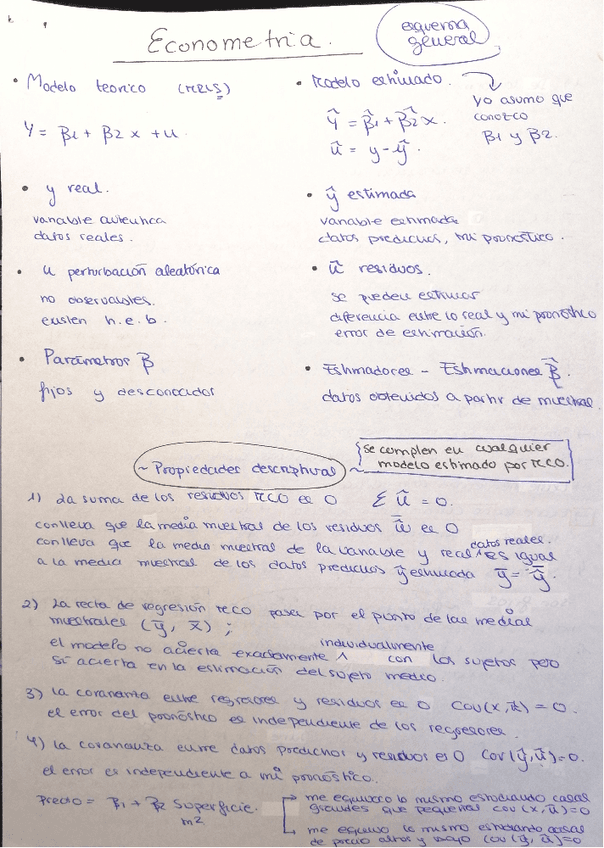 Econometria.
esquema
general
• Modelo teorico (MRLS)
Y = β1 + β2 x + u.
• Modelo estimado.
Ŷ = β̂1 + β̂2 x.
û = y - ŷ.
yo asumo que
conozco
β1 y β2.
• y real.
variable autentica
datos reales.
• ŷ estimada
variable estimada
datos predichos, mi pronostico.
• u perturbación aleatórica
no observables.
existen h.e.b.
• û residuos.
se pueden estimar
diferencia entre lo real y mi pronóstico
error de estimación.
• Parámetros β
fijos y desconocidos
• Estimadores - Estimaciones β̂.
datos obtenidos a partir de muestras.
~ Propiedades descriptivas ~
se complen en cualquier
modelo estimado por MCO.
1) La suma de los residuos MCO es 0 Σ û = 0.
conlleva que la media muestral de los residuos û es 0
datos reales.
conlleva que la media muestral de la variable y real ^ es igual
a la media muestral de los datos predichos ŷ estimada ȳ = ŷ̄.
2) La recta de regresión MCO pasa por el punto de las medias
muestrales (ȳ, x̄) ;
individualmente
el modelo no acierta exactamente ^ con los sujetos pero
si acierta en la estimación del sujeto medio.
3) la covarianza entre regresores y residuos es 0 Cov(x,û) = 0.
el error del pronóstico es independiente de los regresores.
4) la covarianza entre datos predichos y residuos es 0 Cov(ŷ,û)=0.
el error es independiente a mi pronóstico.
Precio = β1 + β2 Superficie.
m²
me equivoco lo mismo estudiando casas
grandes que pequeñas cov(x,û)=0
me equivoco lo mismo estudiando casas
de precio altos y bajo Cov(ŷ,û)=0